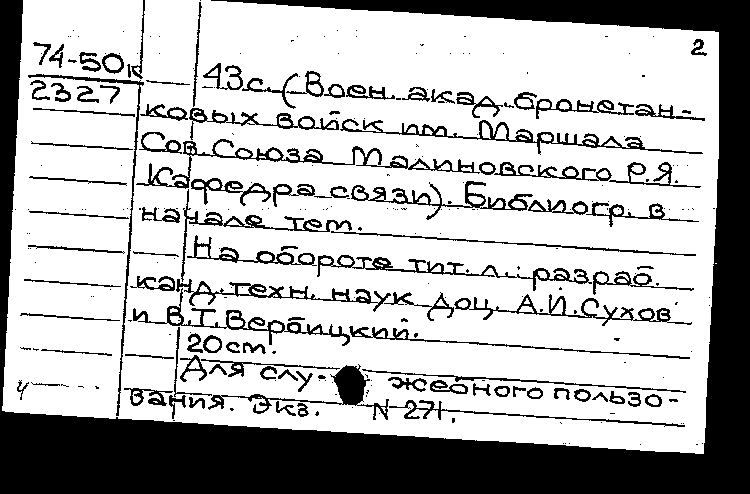 2
74-50к
2327
43с. (Воен. акад. бронетан-
ковых войск им. Маршала
Сов. Союза Малиновского Р.Я.
Кафедра связи). Библиогр. в
начале тем.
На обороте тит. л.: разраб.
канд. техн. наук доц. А.И. Сухов
и В.Т. Вербицкий.
20 см.
Для слу- жебного пользо-
вания. Экз. N 271.